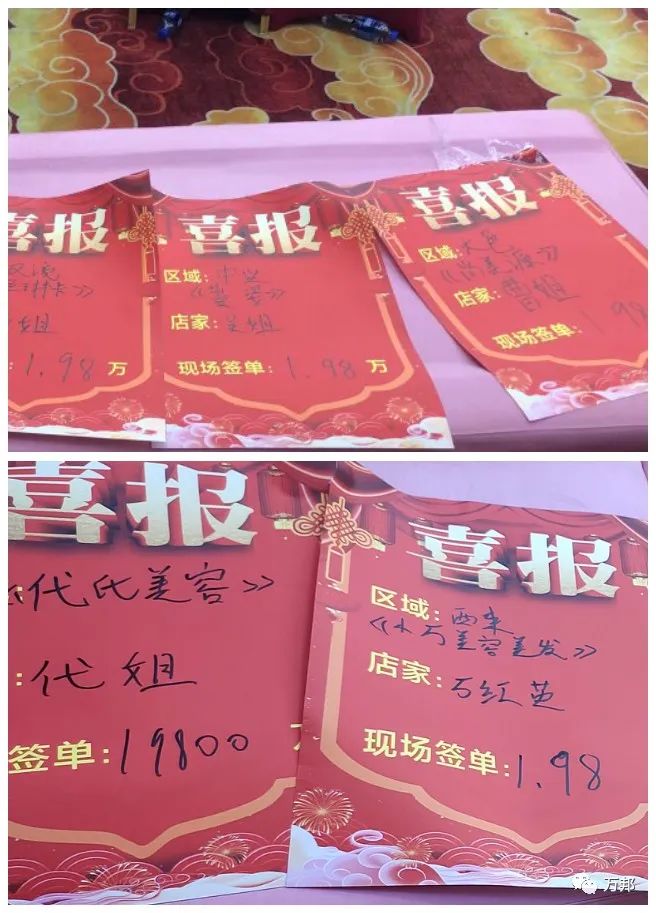 喜报
姐
1.98 万
喜报
区域:
店家: 姐
现场签单: 1.98 万
喜报
区域:
店家: 曹姐
现场签单: 1.98
喜报
《代氏美容》
: 代姐
签单: 19800 万
喜报
区域: 西来
《小万美容美发》
店家: 万红英
现场签单: 1.98
万邦